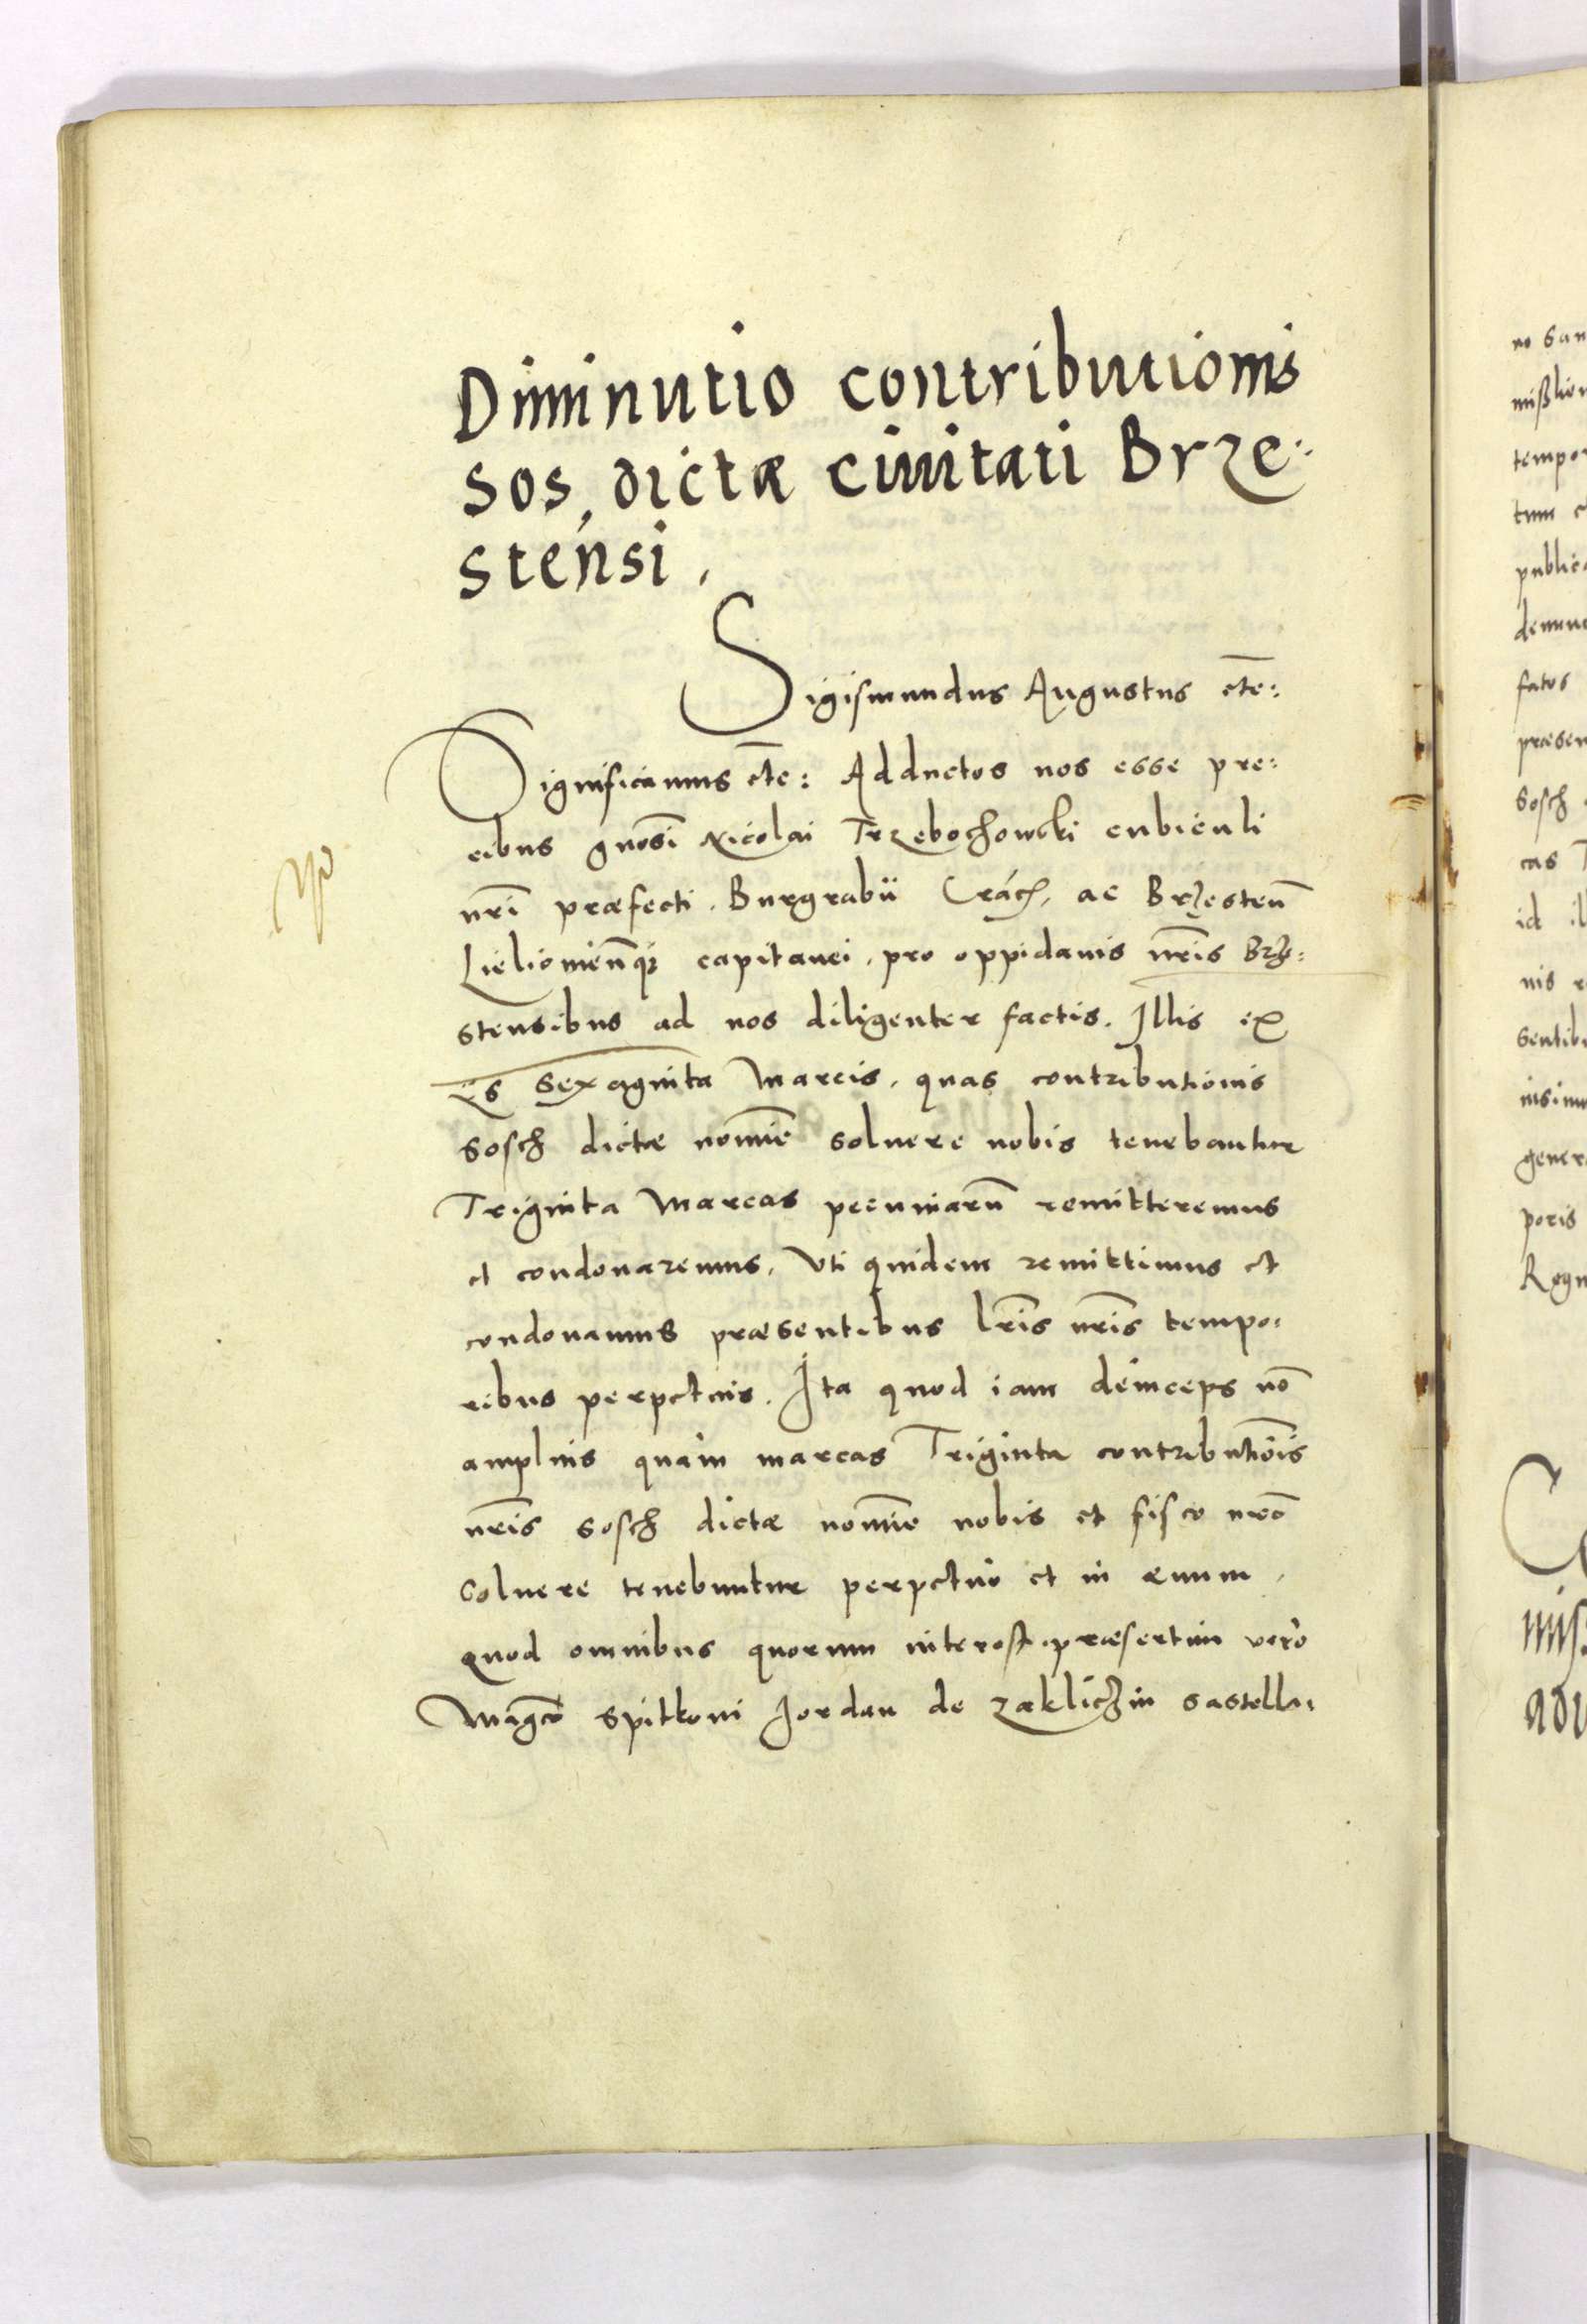 Diminutio contributionis
sos, dictæ ciuitati Brze:
stensi.
Sigismundus Augustus etc̄:
Significamus etc̄: Adductos nos esse pre:
cibus gnosi Nicolai Trzebochowski cubiculi
nr̄i præfecti. Burgrabii Crac. ac Brzesten̄
capitanei. pro oppidanis nr̄is Brze:
stensibus ad nos diligenter factis. Illis ex
iis sexaginta Marcis. quas contributionis
sosch dictæ nomīe soluere nobis tenebantur
Triginta Marcas pecuniarū remitteremus
et condonaremus. Vti quidem remittimus et
condonamus præsentibus lr̄is nr̄is tempo:
ribus perpetuis. Ita quod iam deinceps nō
amplius quàm marcas Triginta contributiōis
nr̄is sosch dictæ nomīe nobis et fisco nr̄o
soluere tenebuntur perpetuò et in æuum.
Quod omnibus quorum interest. præsertim verò
Magco Spitkoni Jordan de Zakliczin castella:
ro san
mißlien
tempor
tum c
public
denun
fatos
præsen
Sosch
cas T
id il
nis r
sentib
nisimu
gener
poris
Regn
mis
adu